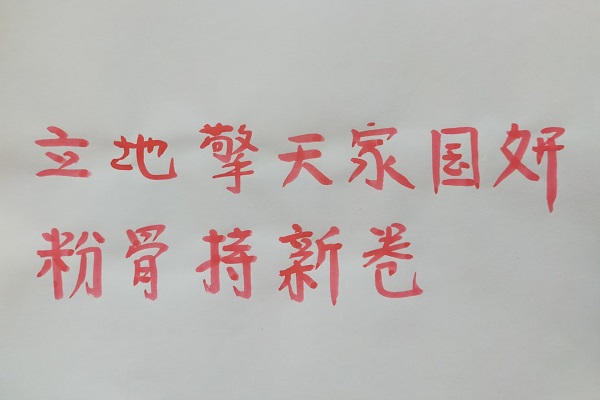 立地擎天家国妍
粉骨持新卷